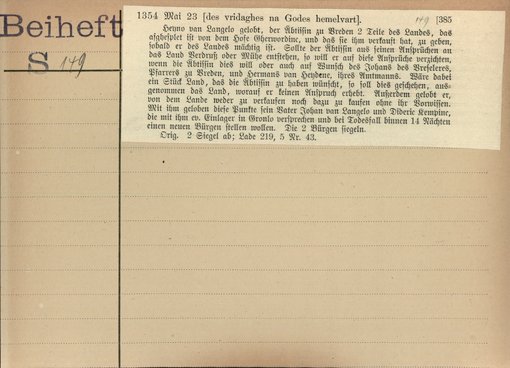 Beiheft
S 149
1354 Mai 23 [des vridaghes na Godes hemelvart]. 149 [385
Heyno van Langelo gelobt, der Äbtissin zu Vreden 2 Teile des Landes, das
afghesplet ist von dem Hofe Gherwordinc, und das sie ihm verkauft hat, zu geben,
sobald er des Landes mächtig ist. Sollte der Äbtissin aus seinen Ansprüchen an
das Land Verdruß oder Mühe entstehen, so will er auf diese Ansprüche verzichten,
wenn die Äbtissin dies will oder auch auf Wunsch des Johans des Vreselers,
Pfarrers zu Vreden, und Hermans van Heydene, ihres Amtmanns. Wäre dabei
ein Stück Land, das die Äbtissin zu haben wünscht, so soll dies geschehen, aus-
genommen das Land, worauf er keinen Anspruch erhebt. Außerdem gelobt er,
von dem Lande weder zu verkaufen noch dazu zu kaufen ohne ihr Vorwissen.
Mit ihm geloben diese Punkte sein Vater Johan van Langelo und Dideric Lempinc,
die mit ihm ev. Einlager in Gronlo versprechen und bei Todesfall binnen 14 Nächten
einen neuen Bürgen stellen wollen. Die 2 Bürgen siegeln.
Orig. 2 Siegel ab; Lade 219, 5 Nr. 43.